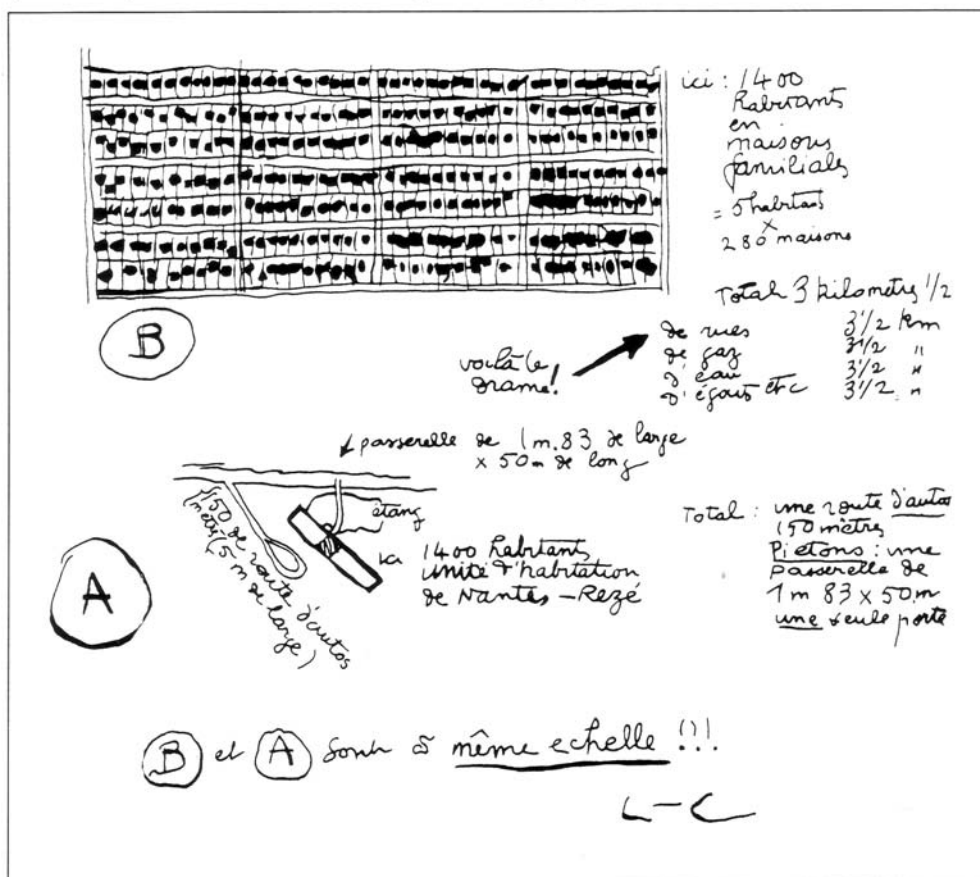 ici : 1400
habitants
en
maisons
familiales
= 5 habitants
×
280 maisons
Total 3 kilometres 1/2
de rues 3 1/2 km
de gaz 3 1/2 "
d'eau 3 1/2 "
d'égouts etc 3 1/2 "
B
voilà le
drame!
passerelle de 1m.83 de large
× 50m de long
150 de route d'autos
mètres (5 m de large)
étang
A
ici
1400 habitants
unité d'habitation
de Nantes – Rezé
Total : une route d'autos
150 mètres
Piétons : une
passerelle de
1m 83 × 50.m
une seule porte
B et A sont à même echelle !!!
L–C